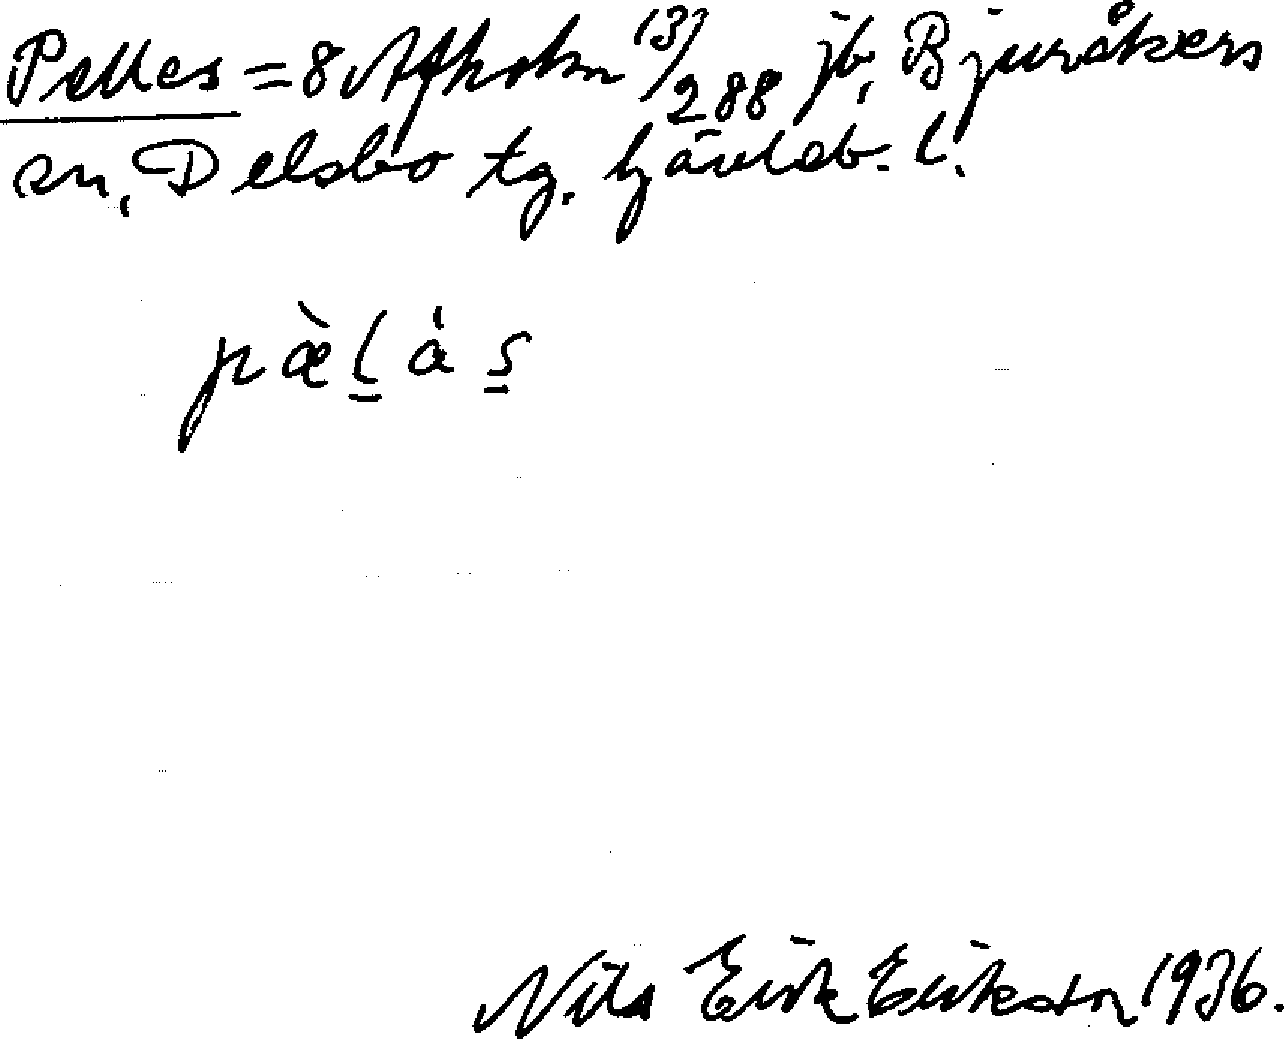 Pelles = 8 Afholm 13/288 jb, Bjuråkers
sn, Delsbo tg. Gävleb. l.
pæ̀ḻȧs̱
Nils Erik Erikson 1936.